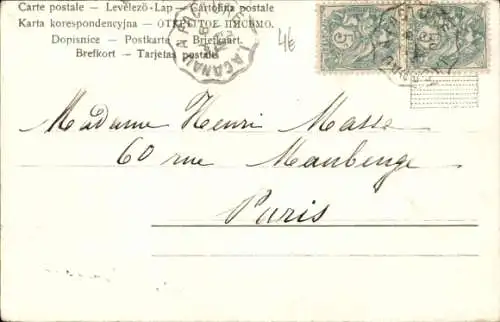 Carte postale – Levelező-Lap – Cartolina postale
Karta korespondencyjna – ОТКРЫТОЕ ПИСЬМО.
Dopisnice – Postkarta – Briefkaart.
Brefkort – Tarjetas postales
LACANAU A
4E
5 5
Madame Henri Masse
60 rue Maubenge
Paris